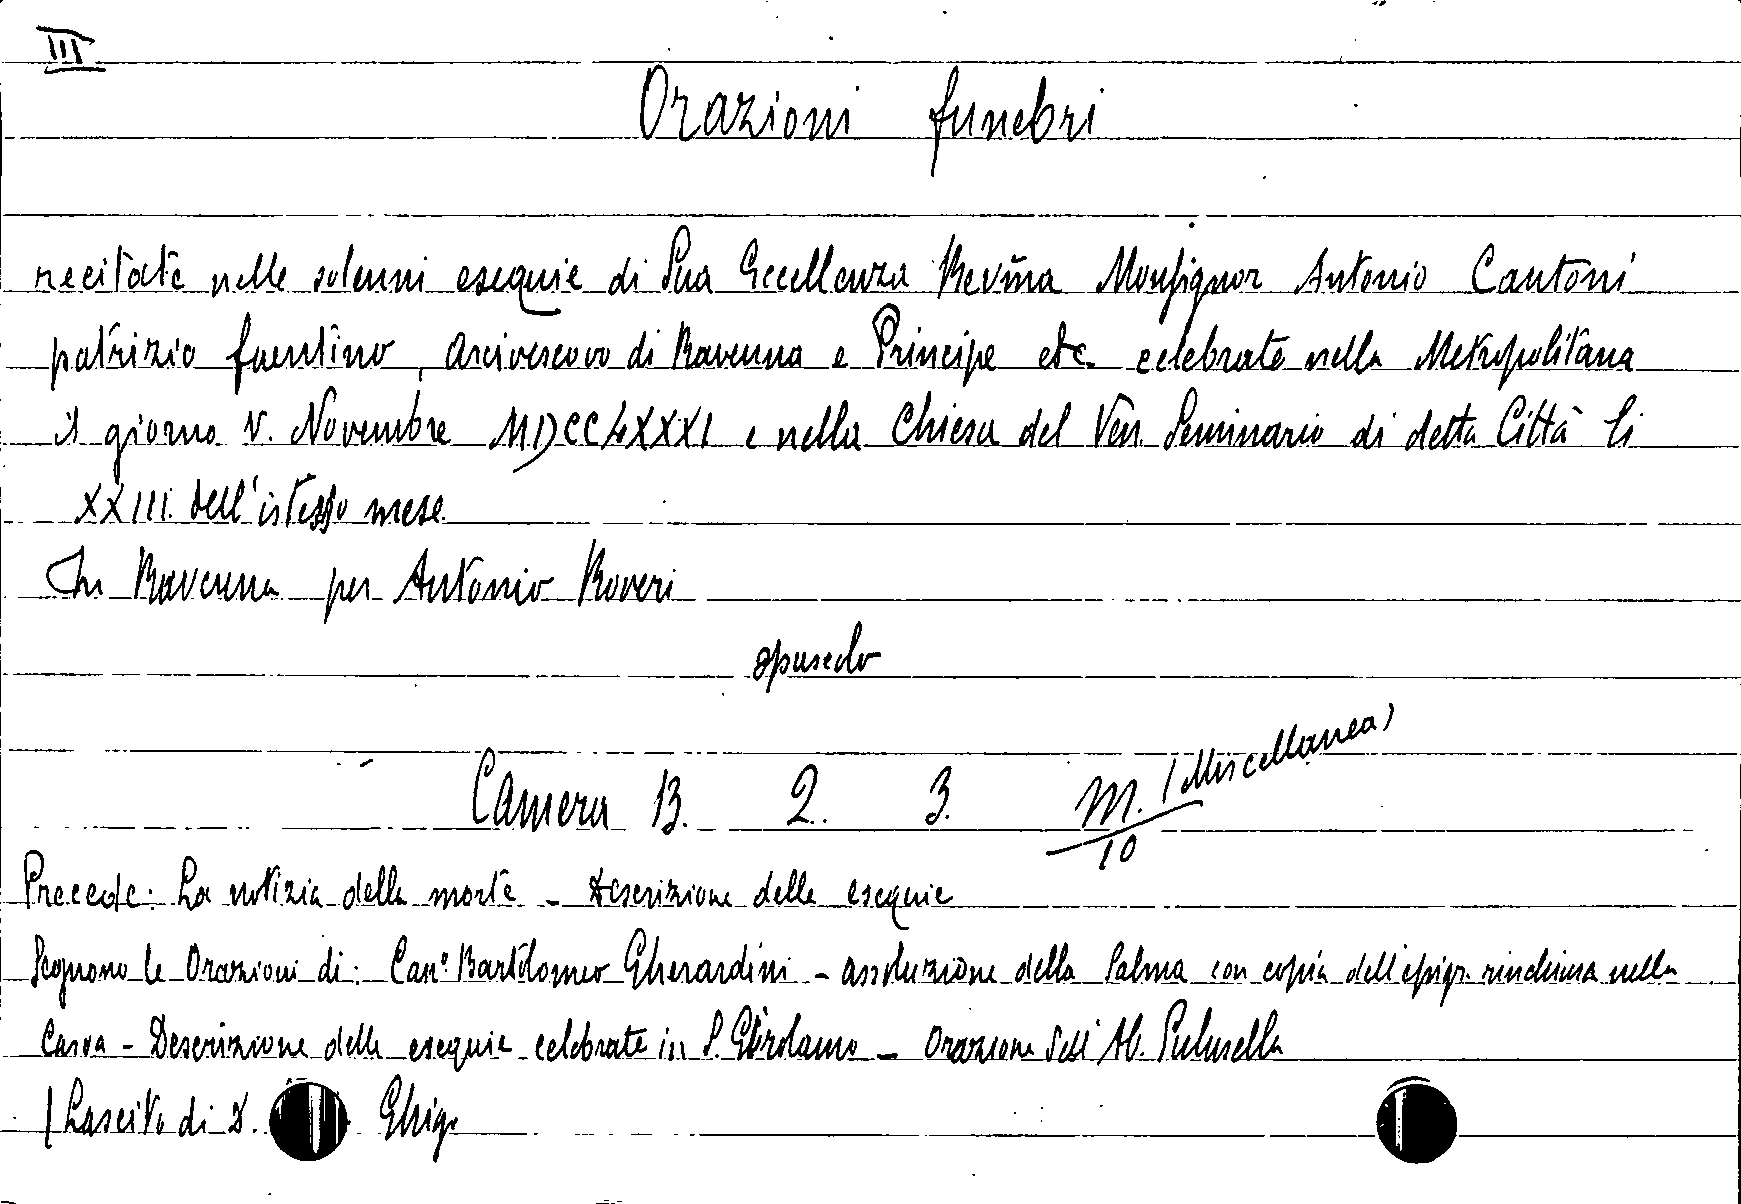 III
Orazioni funebri
recitate nelle solenni esequie di Sua Eccellenza Revm̃a Monsignor Antonio Cantoni
patrizio faentino, Arcivescovo di Ravenna e Principe etc. celebrate nella Metropolitana
il giorno V. Novembre MDCCLXXXI e nella Chiesa del Ven. Seminario di detta Città li
XXIII. dell'istesso mese.
In Ravenna per Antonio Roveri
opuscolo
Camera B. 2. 3. M. (Miscellanea)
10
Precede: La notizia della morte - Descrizione delle esequie
Seguono le Orazioni di: Can° Bartolomeo Gherardini - assoluzione della Salma con copia dell'epigr. rinchiusa nella
Cassa - Descrizione delle esequie celebrate in S. Girolamo - Orazione dell'Ab.
(Lascito di D. Ghigi